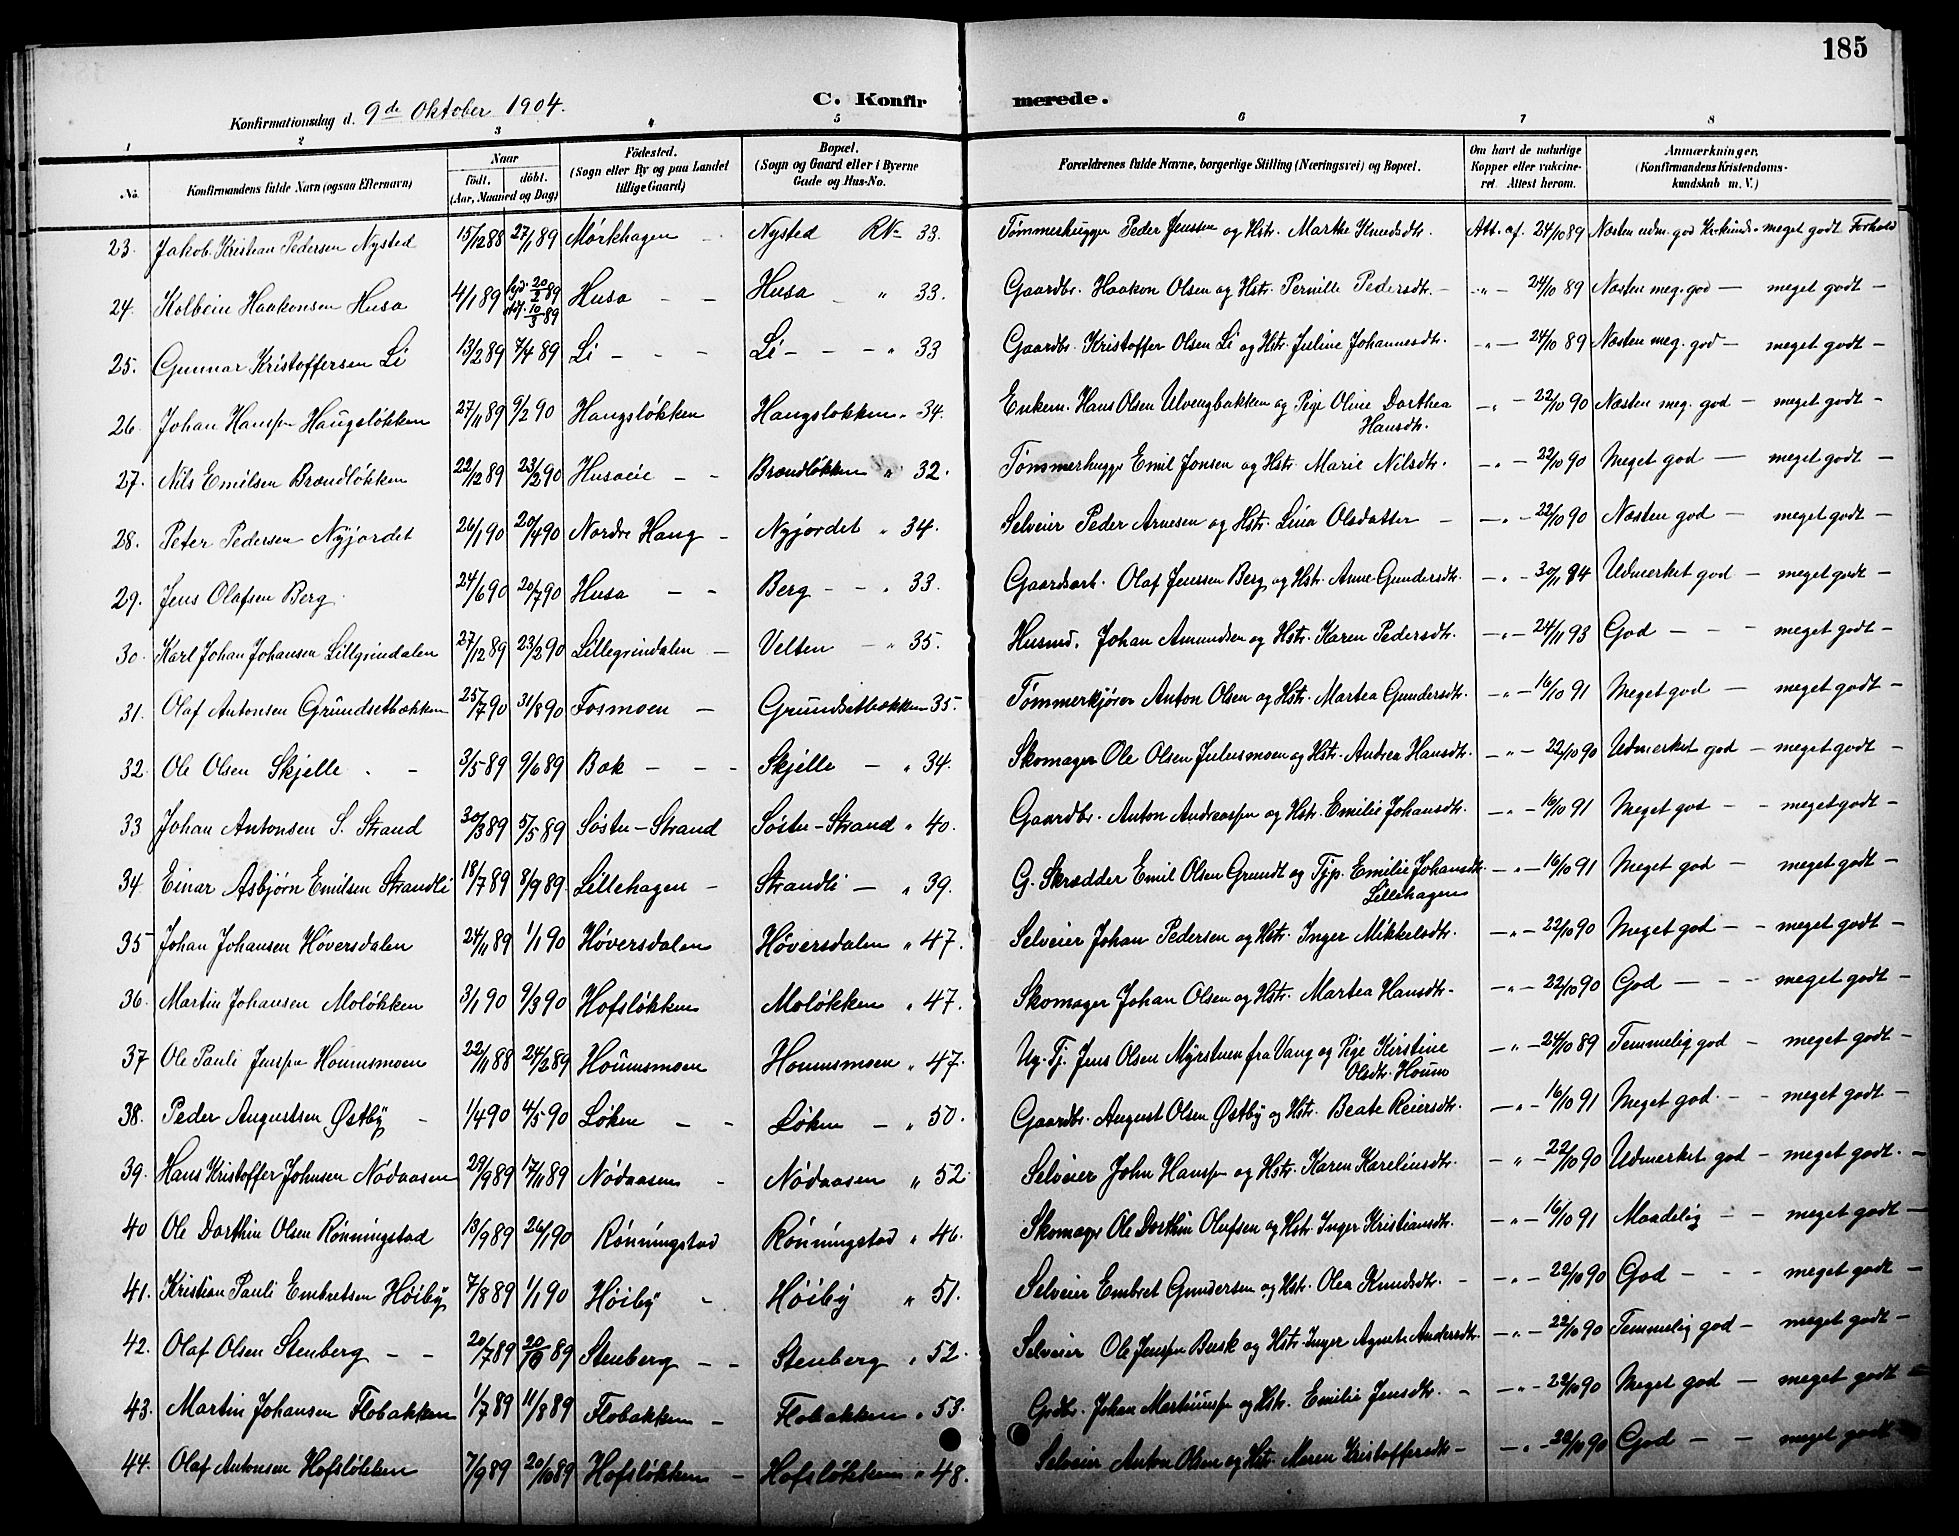 185
C. Konfirmerede.
Konfirmationsdag d. 9de Oktober 1904.
1 2 3 4 5 6 7 8
No. Konfirmandens fulde Navn (ogsaa Efternavn) Naar født. døbt. (Aar, Maaned og Dag) Fødested. (Sogn eller By og paa Landet tillige Gaard) Bopæl. (Sogn og Gaard eller i Byerne Gade og Hus-No. Forældrenes fulde Navne, borgerlige Stilling (Næringsvei) og Bopæl. Om havt de naturlige Kopper eller vaccineret. Attest herom. Anmærkninger, (Konfirmandens Kristendomskundskab m. V.)
23. Jakob Kristian Pedersen Nysted 15/12 88 27/1 89 Mørkhagen Nysted RN- 33. Tømmerhugger Peder Jenssen og Hstr. Marthe Knudsdtr. Att. af. 24/10 89 Næsten udm. god meget godt Forhold
24. Kolbein Haakonsen Husa 4/1 89 20/2 89 10/3 89 Husa Husa " 33. Gaardbr. Haakon Olsen og Hstr. Pernille Pedersdtr. - " - 24/10 89 Næsten meg. god - meget godt -
25. Gunnar Kristoffersen Li 13/2 89 7/4 89 Li Li " 33 Gaardbr. Kristoffer Olsen Li og Hstr. Juline Johannesdtr. - " - 24/10 89 Næsten meg. god - meget godt -
26. Johan Hanssen Haugsløkken 27/11 89 9/2 90 Haugsløkken Haugsløkken " 34. Enkem. Hans Olsen Ulvengbakken og Pige Oline Dorthea Hansdtr. - " - 22/10 90 Næsten meg. god - meget godt -
27. Nils Emilsen Brændløkken 22/12 89 23/2 90 Husaeie Brændløkken " 32. Tømmerhugger Emil Jonsen og Hstr. Marie Nilsdtr. - " - 22/10 90 Meget god - meget godt -
28. Peter Pedersen Nyjordet 26/1 90 20/4 90 Nordre Haug Nyjordet " 34. Selveier Peder Arnesen og Hstr. Lina Olsdatter - " - 22/10 90 Næsten god - meget godt -
29. Jens Olafsen Berg 24/6 90 20/7 90 Husa Berg " 33. Gaardsarb. Olaf Jenssen Berg og Hstr. Anne Gundersdtr. - " - 30/11 94 Udmerket god - meget godt -
30. Karl Johan Johansen Lillegrindalen 27/12 89 23/2 90 Lillegrindalen Velten " 35. Husmd. Johan Amundsen og Hstr. Karen Pedersdtr. - " - 24/11 93 God - meget godt -
31. Olaf Antonsen Grundsetbækken 25/7 90 31/8 90 Fosmoen Grundsetbækken 35. Tømmerkjører Anton Olsen og Hstr. Martea Gundersdtr. - " - 16/10 91 Meget god - meget godt -
32. Ole Olsen Skjelle 3/5 89 9/6 89 Bak Skjelle " 34. Skomager Ole Olsen Julusmoen og Hstr. Andrea Hansdtr. - " - 22/10 90 Udmerket god - meget godt -
33 Johan Antonsen S. Strand 30/3 89 5/5 89 Søstu-Strand Søstu-Strand " 40. Gaardbr. Anton Andreassen og Hstr. Emilie Johansdtr. - " - 16/10 91 Meget god - meget godt -
34 Einar Asbjørn Emilsen Strandli 18/7 89 8/9 89. Lillehagen Strandli " 39. G. Skrædder Emil Olsen Grundt og Tjp. Emilie Johansdtr. Lillehagen - " - 16/10 91 Meget god - meget godt -
35 Johan Johansen Høversdalen 24/11 89 1/1 90 Høversdalen Høversdalen " 47. Selveier Johan Pedersen og Hstr. Inger Mikkelsdtr. - " - 22/10 90 Meget god - meget godt -
36. Martin Johansen Moløkken 3/1 90 9/3 90 Hofsløkken Moløkken " 47. Skomager Johan Olsen og Hstr. Martea Hansdtr. - " - 22/10 90 God - meget godt -
37 Ole Pauli Jenssen Houmsmoen 22/11 88 24/2 89 Houmsmoen Houmsmoen " 47. Ug. Tj. Jens Olsen Myrstuen fra Vang og Pige Kirstine Olsdtr. Houm - " - 24/10 89 Temmelig god - meget godt -
38. Peder Augustsen Østby 1/4 90 4/5 90 Løken Løken " 50. Gaardbr. August Olsen Østby og Hstr. Beate Reiersdtr. - " - 16/10 91 Meget god - meget godt -
39. Hans Kristoffer Johnsen Nødaasen 29/9 89 17/11 89 Nødaasen Nødaasen " 52 Selveier John Hanssen og Hstr. Karen Karelinsdtr. - " - 22/10 90 Udmerket god - meget godt -
40 Ole Dorthin Olsen Rønningstad 13/9 89 26/1 90 Rønningstad Rønningstad " 46. Skomager Ole Dorthin Olufsen og Hstr. Inger Kristiansdtr. - " - 16/10 91 Maadelig - meget godt -
41. Kristian Pauli Embretsen Høiby 7/8 89 1/1 90 Høiby Høiby " 51. Selveier Embret Gundersen og Hstr. Olea Knudsdtr. - " - 22/10 90 God - meget godt -
42. Olaf Olsen Stenberg 20/7 89 20/10 89 Stenberg Stenberg " 52. Selveier Ole Jenssen Busk og Hstr. Inger Agnete Andersdtr. - " - 22/10 90 Temmelig god - meget godt -
43. Martin Johansen Flobakken 1/7 89 11/8 89 Flobakken Flobakken " 53. Grdbr. Johan Martinussen og Hstr. Emilie Jensdtr. - " - 22/10 90 Meget god - meget godt -
44. Olaf Antonsen Hofsløkken 7/9 89 20/10 89 Hofsløkken Hofsløkken " 48. Selveier Anton Olsen og Hstr. Maren Kristoffersdtr. - " - 22/10 90 God - meget godt -